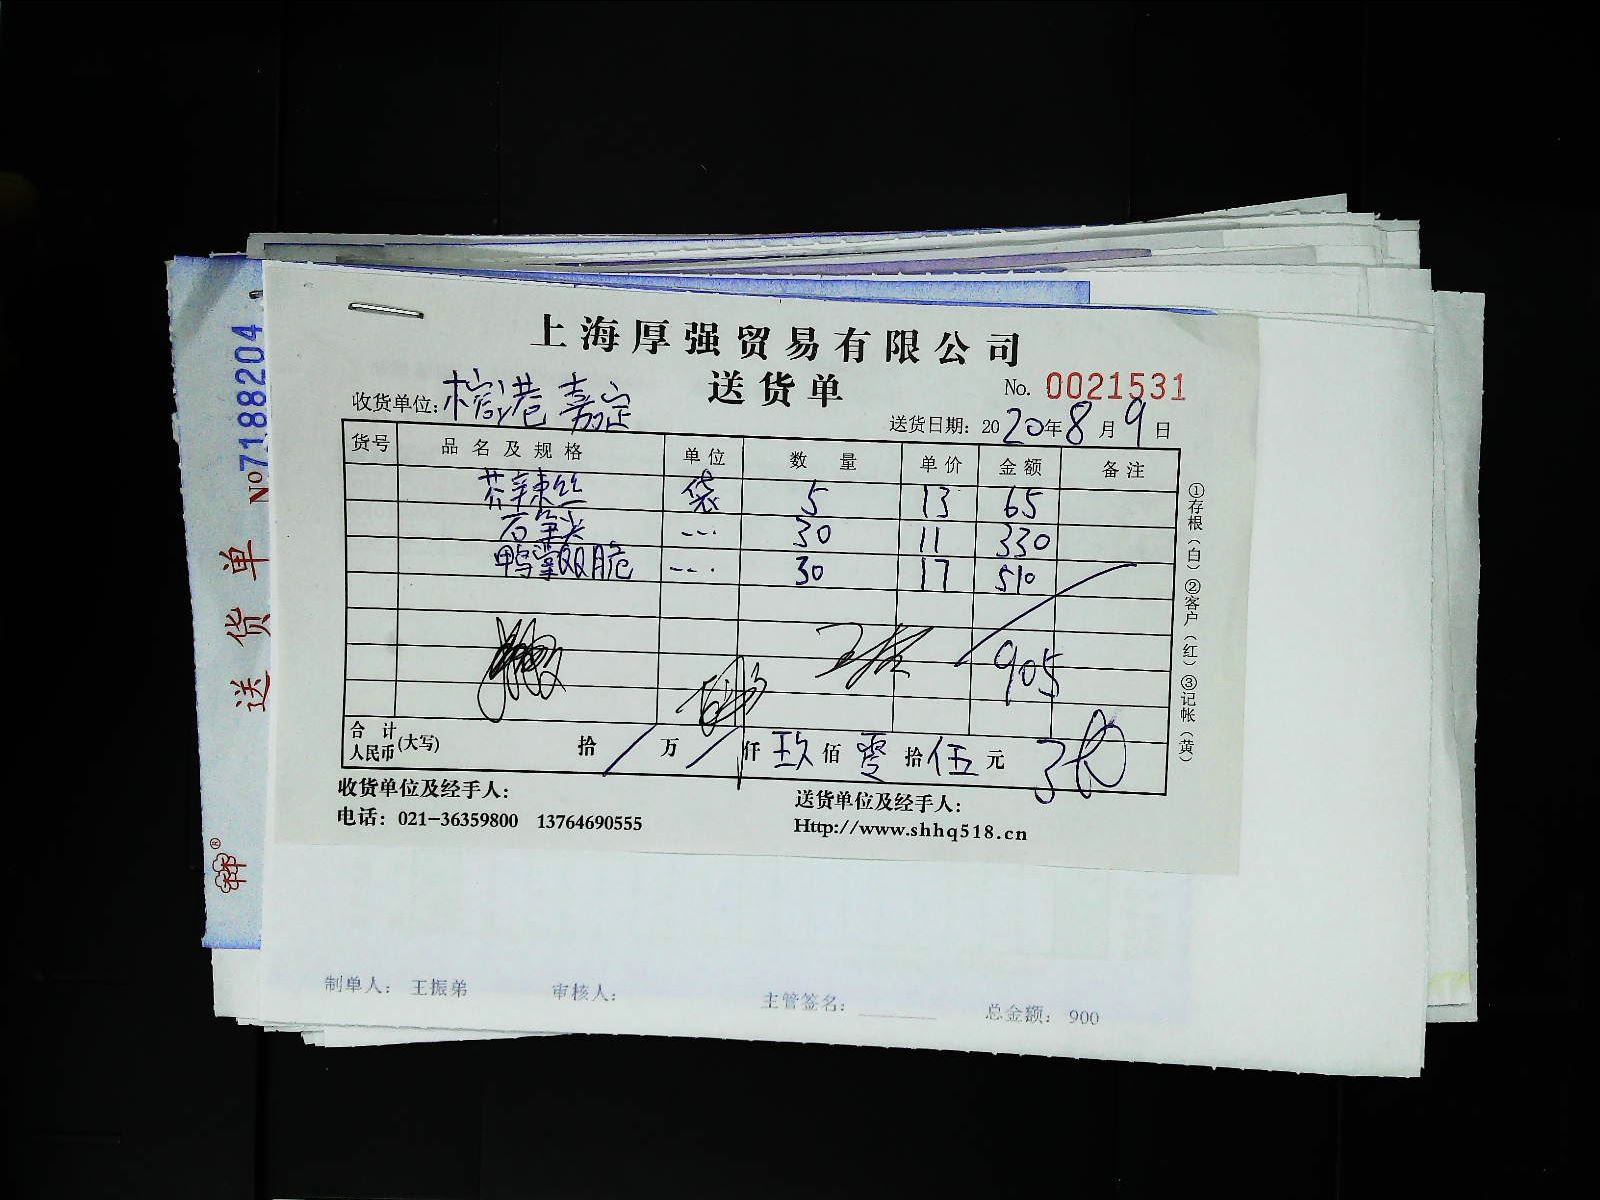 上海厚强贸易有限公司
送货单
No. 0021531
收货单位: 榕港 嘉定
送货日期: 2020年8月9日
货号 品名及规格 单位 数量 单价 金额 备注
芥辣丝 袋 5 13 65
石笋尖 --- 30 11 330
鸭掌双脆 --- 30 17 510
905
合计人民币(大写) 拾 / 万 / 仟 玖 佰 零 拾 伍 元
收货单位及经手人:
送货单位及经手人:
电话: 021-36359800 13764690555
Http://www.shhq518.cn
①存根(白) ②客户(红) ③记帐(黄)
送货单 No7188204
制单人: 王振弟 审核人: 主管签名: 总金额: 900